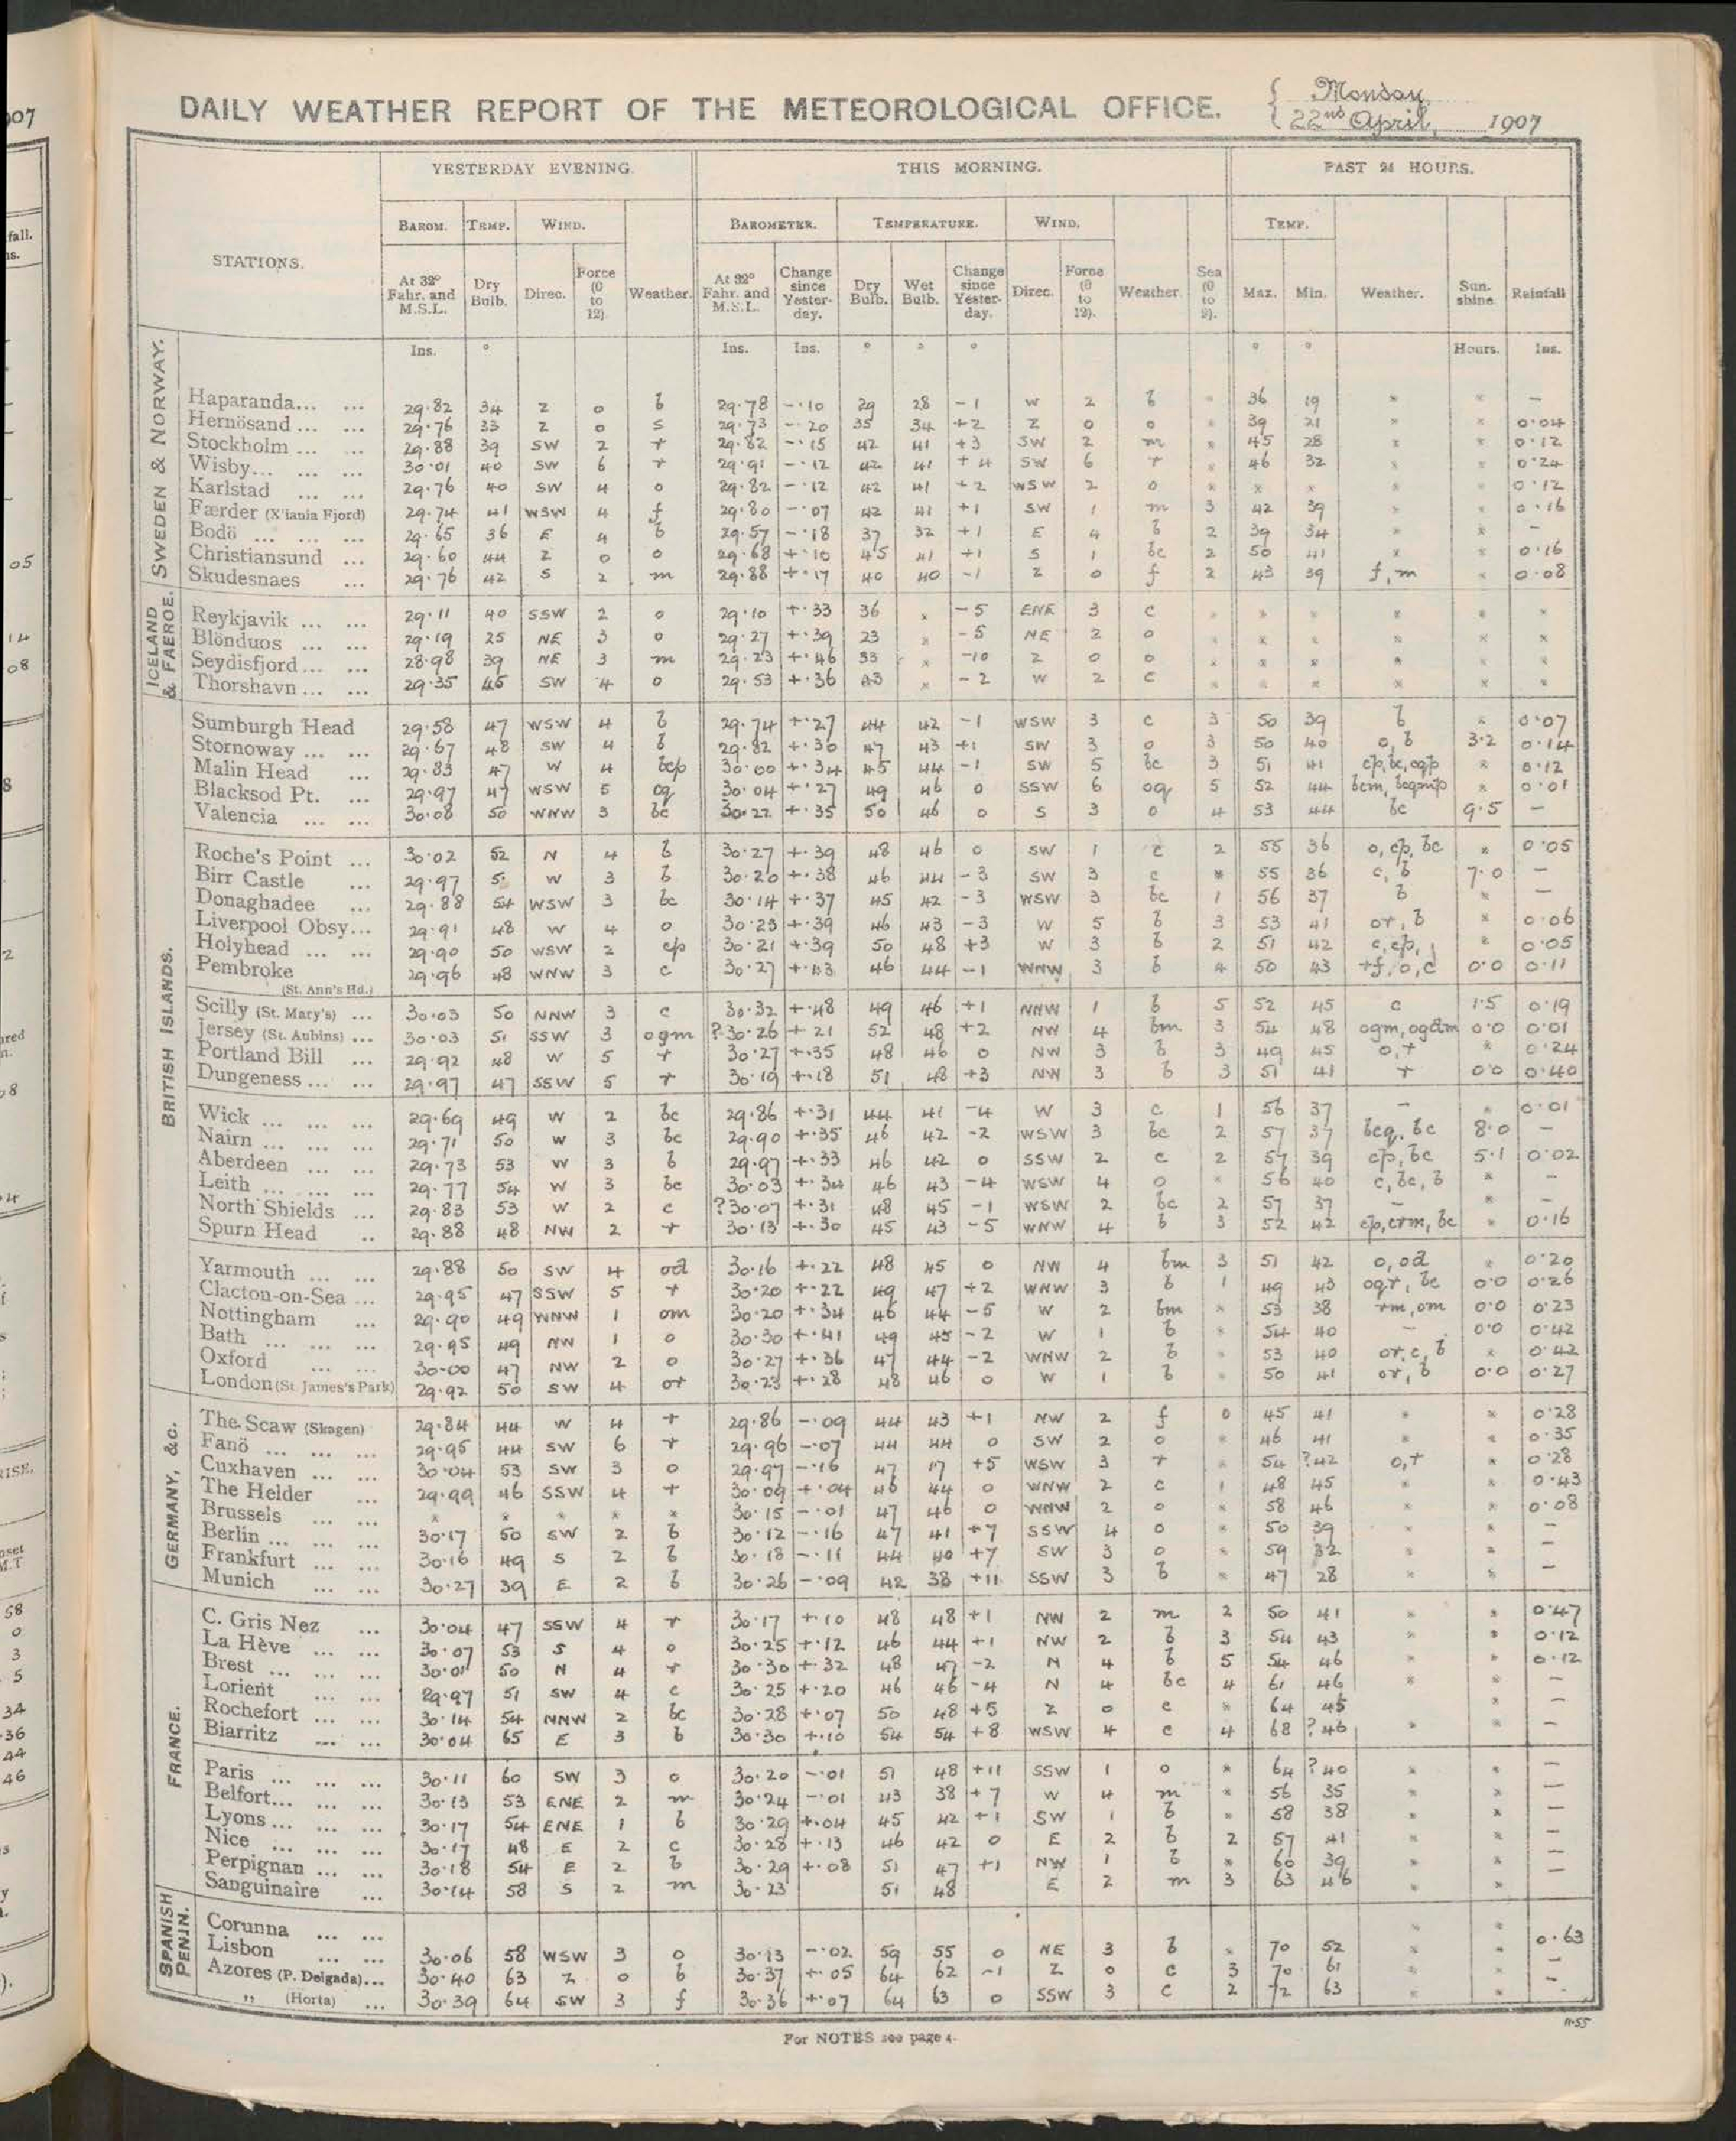 DAILY WEATHER REPORT OF THE METEOROLOGICAL OFFICE.
Monday
22nd April, 1907
YESTERDAY EVENING. THIS MORNING. PAST 24 HOURS.
BAROM. TEMP. WIND. BAROMETER. TEMPERATURE. WIND. TEMP.
STATIONS. At 32° Fahr. and M.S.L. Dry Bulb. Direc. Force (0 to 12). Weather. At 32° Fahr. and M.S.L. Change since Yester-day. Dry Bulb. Wet Bulb. Change since Yester-day. Direc. Force (0 to 12). Weather. Sea (0 to 9). Max. Min. Weather. Sun-shine. Rainfall
Ins. ° Ins. Ins. ° ° ° ° ° Hours. Ins.
SWEDEN & NORWAY.
Haparanda... ... 29.82 34 Z 0 b 29.78 -.10 29 28 -1 W 2 b * 36 19 * * —
Hernösand ... ... 29.76 33 Z 0 s 29.73 -.20 35 34 +2 Z 0 o * 39 21 * * 0.04
Stockholm ... ... 29.88 39 SW 2 r 29.82 -.15 42 41 +3 SW 2 m * 45 28 * * 0.12
Wisby... ... ... 30.01 40 SW 6 r 29.91 -.12 42 41 +4 SW 6 r * 46 32 * * 0.24
Karlstad ... ... 29.76 40 SW 4 o 29.82 -.12 42 41 +2 WSW 2 o * * * * * 0.12
Færder (X'iania Fjord) 29.74 41 WSW 4 f 29.80 -.07 42 41 +1 SW 1 m 3 42 39 * * 0.16
Bodö ... ... ... 29.65 36 E 4 b 29.57 -.18 37 32 +1 E 4 b 2 39 34 * * —
Christiansund ... 29.60 44 Z 0 o 29.68 +.10 45 41 +1 S 1 bc 2 50 41 * * 0.16
Skudesnaes ... 29.76 42 S 2 m 29.88 +.17 40 40 -1 Z 0 f 2 43 39 f, m * 0.08
ICELAND & FAEROE.
Reykjavik ... ... 29.11 40 SSW 2 o 29.10 +.33 36 * -5 ENE 3 c * * * * * *
Blönduos ... ... 29.19 25 NE 3 o 29.27 +.39 23 * -5 NE 2 o * * * * * *
Seydisfjord... ... 28.98 39 NE 3 m 29.23 +.46 33 * -10 Z 0 o * * * * * *
Thorshavn ... ... 29.35 45 SW 4 o 29.53 +.36 43 * -2 W 2 c * * * * * *
BRITISH ISLANDS.
Sumburgh Head 29.58 47 WSW 4 b 29.74 +.27 44 42 -1 WSW 3 c 3 50 39 b * 0.07
Stornoway ... ... 29.67 48 SW 4 b 29.82 +.30 47 43 +1 SW 3 o 3 50 40 o, b 3.2 0.14
Malin Head ... 29.83 47 W 4 bcp 30.00 +.34 45 44 -1 SW 5 bc 3 51 41 cp, bc, oqp * 0.12
Blacksod Pt. ... 29.97 47 WSW 5 oq 30.04 +.27 49 46 0 SSW 6 oq 5 52 44 bcm, bcqmp * 0.01
Valencia ... ... 30.08 50 WNW 3 bc 30.22 +.35 50 46 0 S 3 o 4 53 44 bc 9.5 —
Roche's Point ... 30.02 52 N 4 b 30.27 +.39 48 46 0 SW 1 c 2 55 36 o, cp, bc * 0.05
Birr Castle ... 29.97 W 3 b 30.20 +.38 46 44 -3 SW 3 c * 55 36 c, b 7.0 —
Donaghadee ... 29.88 54 WSW 3 bc 30.14 +.37 45 42 -3 WSW 3 bc 1 56 37 b * —
Liverpool Obsy... 29.91 48 W 4 o 30.23 +.39 46 43 -3 W 5 b 3 53 41 or, b * 0.06
Holyhead ... ... 29.90 50 WSW 2 cp 30.21 +.39 50 48 +3 W 3 b 2 51 42 c, cp, * 0.05
Pembroke (St. Ann's Hd.) 29.96 48 WNW 3 c 30.27 +.43 46 44 -1 WNW 3 b 4 50 43 rf, o, c 0.0 0.11
Scilly (St. Mary's) ... 30.03 50 NNW 3 c 30.32 +.48 49 46 +1 NNW 1 b 5 52 45 c 1.5 0.19
Jersey (St. Aubins) ... 30.03 51 SSW 3 ogm ?30.26 +21 52 48 +2 NW 4 bm 3 54 48 ogm, ogdm 0.0 0.01
Portland Bill ... 29.92 48 W 5 r 30.27 +.35 48 46 0 NW 3 b 3 49 45 o, r * 0.24
Dungeness ... ... 29.97 47 SSW 5 r 30.19 +.18 51 48 +3 NW 3 b 3 51 41 r 0.0 0.40
Wick ... ... ... 29.69 49 W 2 bc 29.86 +.31 44 41 -4 W 3 c 1 56 37 — * 0.01
Nairn ... ... ... 29.71 50 W 3 bc 29.90 +.35 46 42 -2 WSW 3 bc 2 57 37 bcq, bc 8.0 —
Aberdeen ... ... 29.73 53 W 3 b 29.97 +.33 46 42 0 SSW 2 c 2 57 39 cp, bc 5.1 0.02
Leith ... ... ... 29.77 54 W 3 bc 30.03 +.34 46 43 -4 WSW 4 o * 56 40 c, bc, b * —
North Shields ... 29.83 53 W 2 c ?30.07 +.31 48 45 -1 WSW 2 bc 2 57 37 — * —
Spurn Head .. 29.88 48 NW 2 r 30.13 +.30 45 43 -5 WNW 4 b 3 52 42 cp, crm, bc * 0.16
Yarmouth ... ... 29.88 50 SW 4 od 30.16 +.22 48 45 0 NW 4 bm 3 51 42 o, od * 0.20
Clacton-on-Sea ... 29.95 47 SSW 5 r 30.20 +.22 49 47 +2 WNW 3 b 1 49 43 ogr, bc 0.0 0.26
Nottingham ... 29.90 49 WNW 1 om 30.20 +.34 46 44 -5 W 2 bm * 53 38 rm, om 0.0 0.23
Bath ... ... ... 29.95 49 NW 1 o 30.30 +.41 49 45 -2 W 1 b * 54 40 — 0.0 0.42
Oxford ... ... 30.00 47 NW 2 o 30.27 +.36 47 44 -2 WNW 2 b * 53 40 or, c, b * 0.42
London (St. James's Park) 29.92 50 SW 4 or 30.23 +.28 48 46 0 W 1 b * 50 41 or, b 0.0 0.27
GERMANY, &c.
The Scaw (Skagen) 29.84 44 W 4 r 29.86 -.09 44 43 +1 NW 2 f 0 45 41 * * 0.28
Fanö ... ... ... 29.95 44 SW 6 r 29.96 -.07 44 44 0 SW 2 o * 46 41 * * 0.35
Cuxhaven ... ... 30.04 53 SW 3 o 29.97 -.16 47 +5 WSW 3 r * 54 ?42 o, r * 0.28
The Helder ... 29.99 46 SSW 4 r 30.09 +.04 46 44 0 WNW 2 c 1 48 45 * * 0.43
Brussels ... ... * * * * * 30.15 -.01 47 46 0 WNW 2 o * 58 46 * * 0.08
Berlin ... ... ... 30.17 50 SW 2 b 30.12 -.16 47 41 +7 SSW 4 o * 50 39 * * —
Frankfurt ... ... 30.16 49 S 2 b 30.18 -.11 44 40 +7 SW 3 o * 59 32 * * —
Munich ... ... 30.27 39 E 2 b 30.26 -.09 42 38 +11 SSW 3 b * 47 28 * * —
FRANCE.
C. Gris Nez ... 30.04 47 SSW 4 r 30.17 +.10 48 48 +1 NW 2 m 2 50 41 * * 0.47
La Hève ... ... 30.07 53 S 4 o 30.25 +.12 46 44 +1 NW 2 b 3 54 43 * * 0.12
Brest ... ... ... 30.01 50 N 4 r 30.30 +.32 48 47 -2 N 4 b 5 54 46 * * 0.12
Lorient ... ... 29.97 51 SW 4 c 30.25 +.20 46 46 -4 N 4 bc 4 61 46 * * —
Rochefort ... ... 30.14 54 NNW 2 bc 30.28 +.07 50 48 +5 Z 0 c * 64 45 * —
Biarritz ... ... 30.04 65 E 3 b 30.30 +.10 54 54 +8 WSW 4 c 4 68 ?46 * * —
Paris ... ... ... 30.11 60 SW 3 o 30.20 -.01 51 48 +11 SSW 1 o * 64 ?40 * * —
Belfort... ... ... 30.13 53 ENE 2 m 30.24 -.01 43 38 +7 W 4 m * 56 35 * * —
Lyons ... ... ... 30.17 54 ENE 1 b 30.29 +.04 45 42 +1 SW 1 b * 58 38 * * —
Nice ... ... ... 30.17 48 E 2 c 30.28 +.13 46 42 0 E 2 b 2 57 41 * * —
Perpignan ... ... 30.18 54 E 2 b 30.29 +.08 51 47 +1 NW 1 b * 60 39 * * —
Sanguinaire ... 30.14 58 S 2 m 30.23 51 48 E 2 m 3 63 46 * * —
SPANISH PENIN.
Corunna ... ... * *
Lisbon ... ... 30.06 58 WSW 3 o 30.13 -.02 59 55 0 NE 3 b * 70 52 * * 0.63
Azores (P. Delgada)... 30.40 63 Z 0 b 30.37 +.05 64 62 -1 Z 0 c 3 70 61 * * —
" (Horta) ... 30.39 64 SW 3 f 30.36 +.07 64 63 0 SSW 3 c 2 72 63 * * —
For NOTES see page 4.
11.55